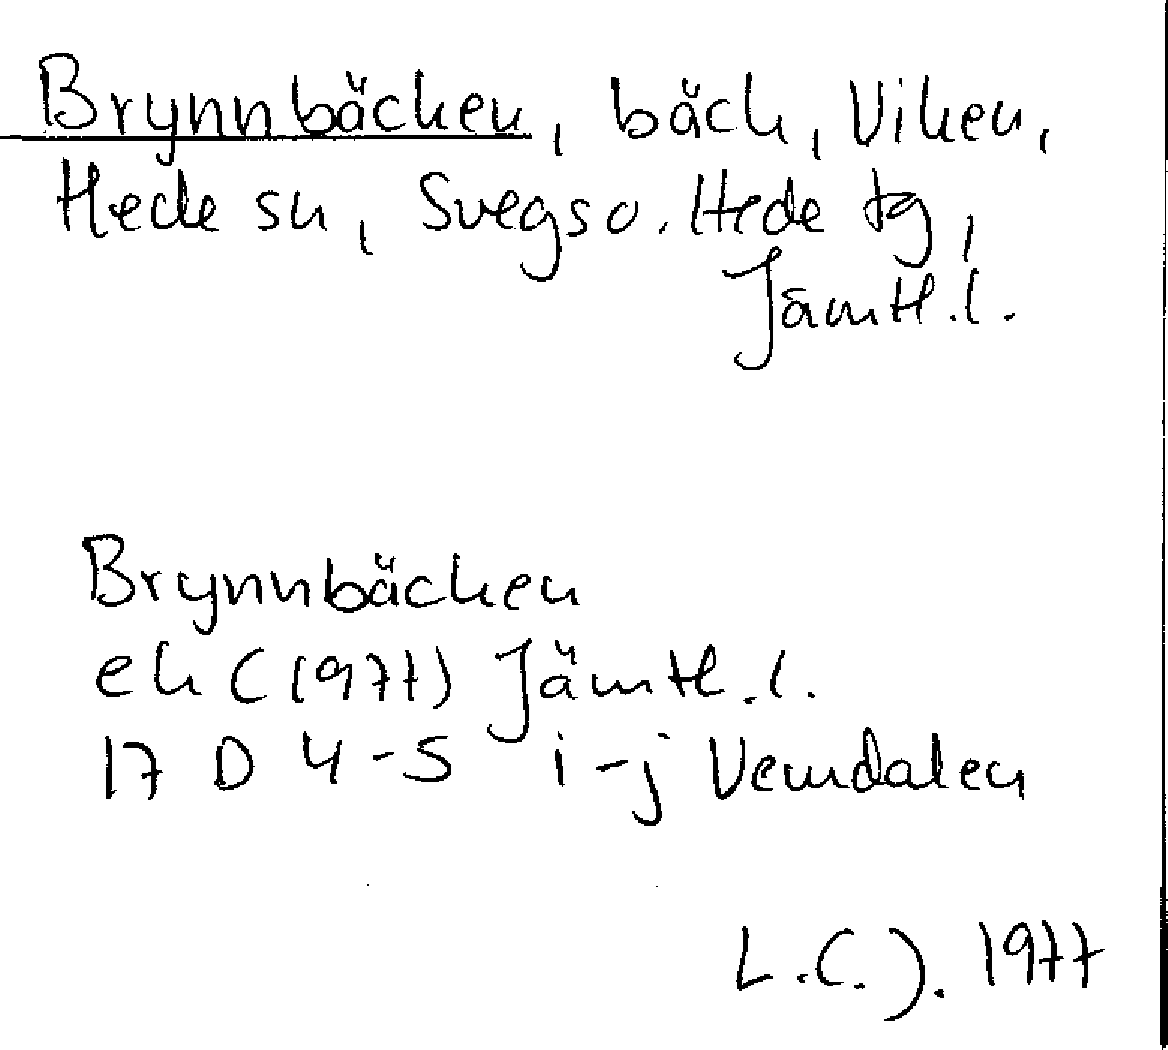 Brynnbäcken, bäck, Viken,
Hede sn, Svegs o. Hede tg,
Jämtl. l.
Brynnbäcken
ek C (1977) Jämtl. l.
17 D 4-5 i-j Vemdalen
L.C.J. 1977